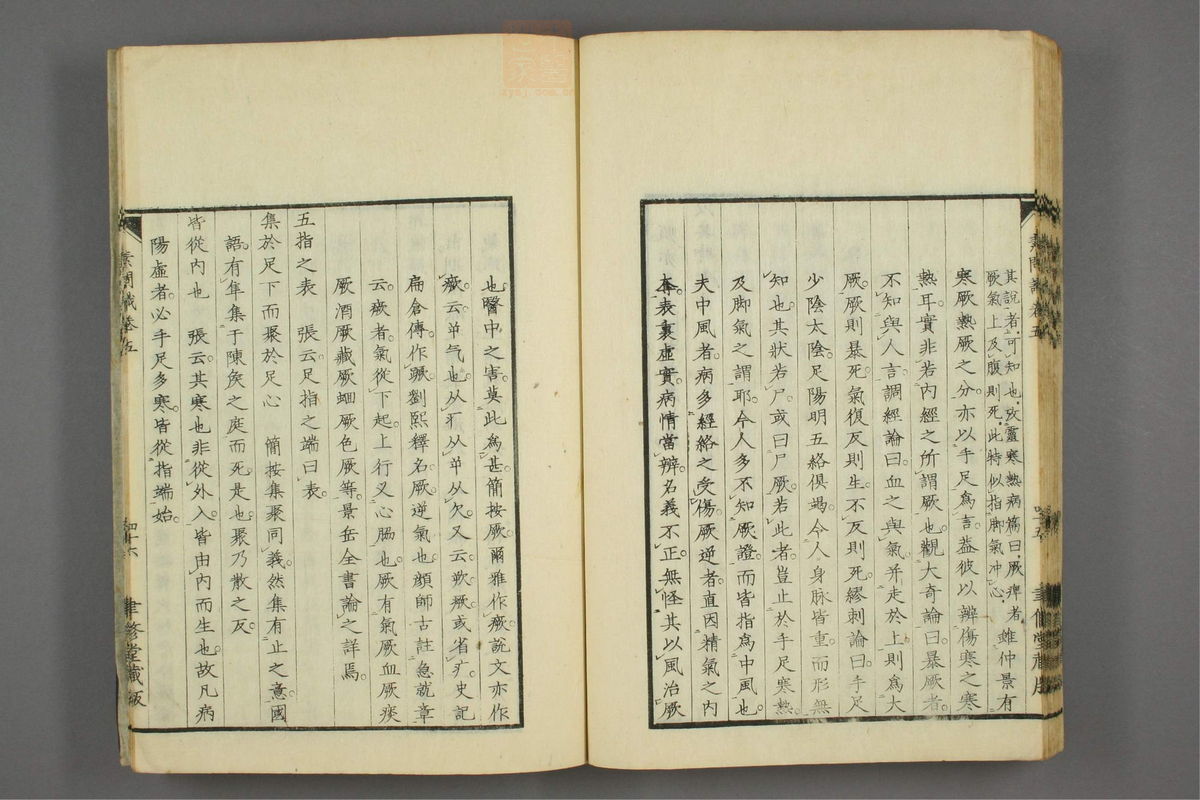 其說者可知也攷靈寒熱病篇曰厥痺者
厥氣上及腹則死此時似指脚氣冲心
雖仲景有
寒厥熱厥之分亦以手足為言蓋彼以辨傷寒之寒
熱耳實非若內經之所謂厥也觀大奇論曰暴厥者
不知與人言調經論曰血之與氣并走於上則為大
厥厥則暴死氣復反則生不反則死繆刺論曰手足
少陰太陰足陽明五絡俱竭令人身脉皆重而形無
知也其狀若尸或曰尸厥若此者豈止於手足寒熱
及脚氣之謂耶今人多不知厥證而皆指為中風也
夫中風者病多經絡之受傷厥逆者直因精氣之內
奪表裏虛實病情當辨名義不正無怪其以風治厥
也醫中之害莫此為甚簡按厥爾雅作瘚說文亦作
瘚云屰气也从疒从屰从欠又云欮瘚或省疒史記
扁倉傳作蹶劉熙釋名厥逆氣也顏師古註急就章
云瘚者氣從下起上行叉心脇也厥有氣厥血厥痰
厥酒厥藏厥蛔厥色厥等景岳全書論之詳焉
五指之表　張云足指之端曰表
集於足下而聚於足心　簡按集聚同義然集有止之意國
語有隼集于陳矦之庭而死是也聚乃散之反
皆從內也　張云其寒也非從外入皆由內而生也故凡病
陽虛者必手足多寒皆從指端始
素問識卷五
四十六
聿修堂藏版